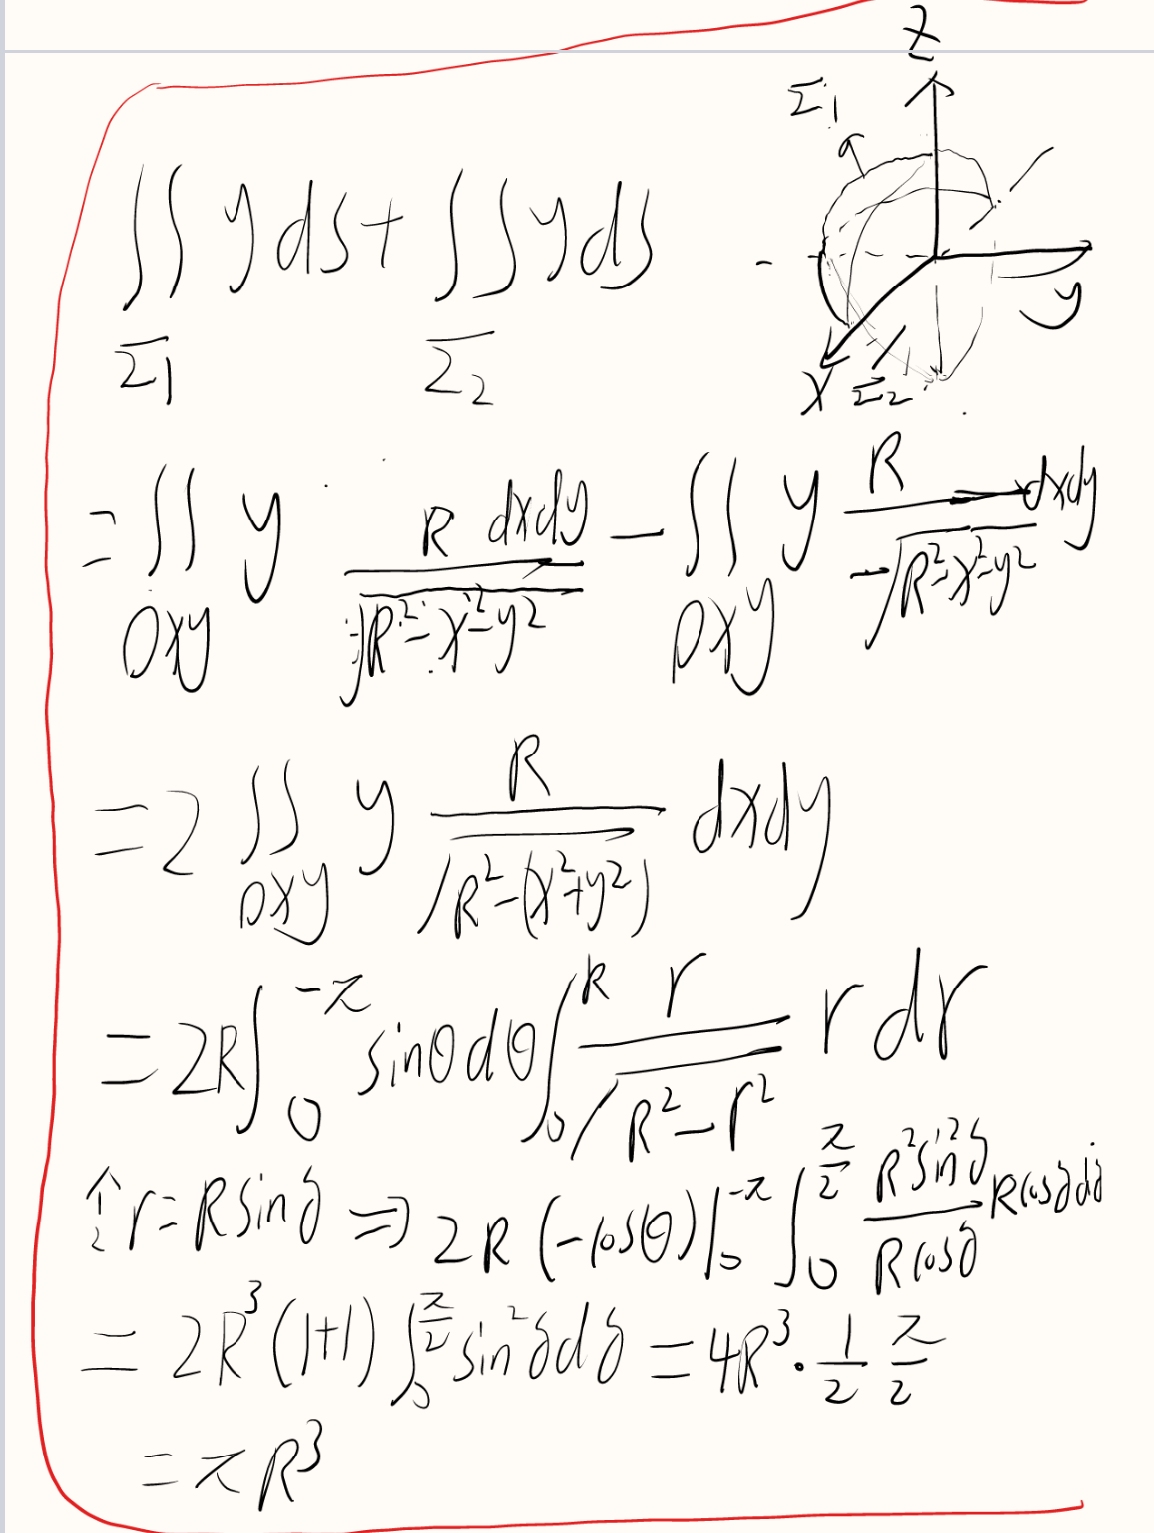 Z
Σ1
∬ y ds + ∬ y ds
Σ1 Σ2
y
X Σ2
= ∬ y R dxdy / √(R²-x²-y²) - ∬ y R / -√(R²-x²-y²) dxdy
Dxy Dxy
= 2 ∬ y R / √(R²-(x²+y²)) dxdy
Dxy
= 2R ∫₀^(-π) sinθ dθ ∫₀^R r / √(R²-r²) r dr
↑ 2 r = R sin∂ ⇒ 2R (-cosθ)|₀^(-π) ∫₀^(π/2) R² sin²∂ / R cos∂ R cos∂ d∂
= 2R³ (1+1) ∫₀^(π/2) sin²∂ d∂ = 4R³ · 1/2 π/2
= π R³